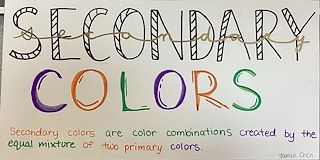 SECONDARY
secondary
COLORS
Secondary colors are color combinations created by the
equal mixture of two primary colors.